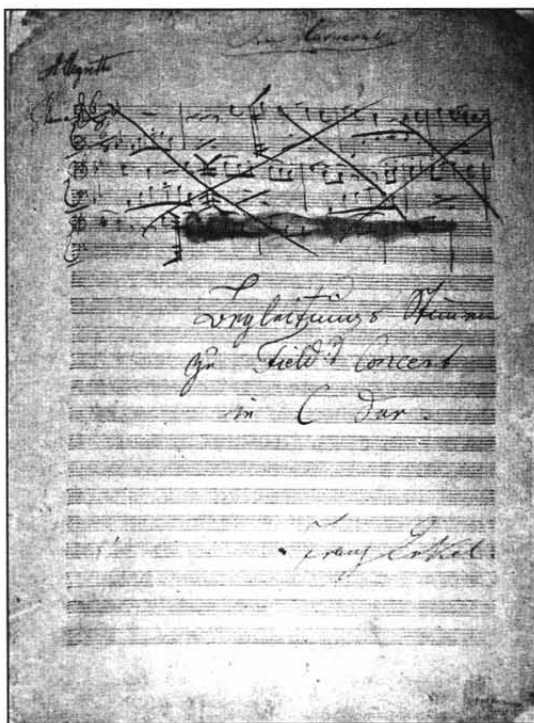 Allegretto
Begleitungs Stimmen
zu Field's Concert
in C dur.
Franz Erkel.